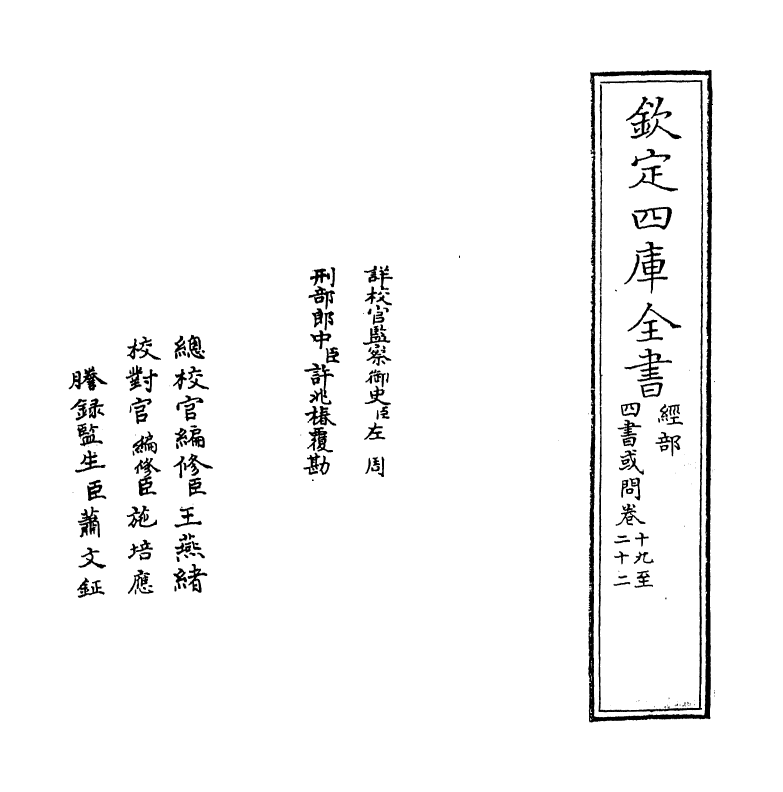 欽定四庫全書
經部
四書或問卷十九至二十二
詳校官監察御史臣左周
刑部郎中臣許兆椿覆勘
總校官編修臣王燕緒
校對官編修臣施培應
謄錄監生臣蕭文鉦